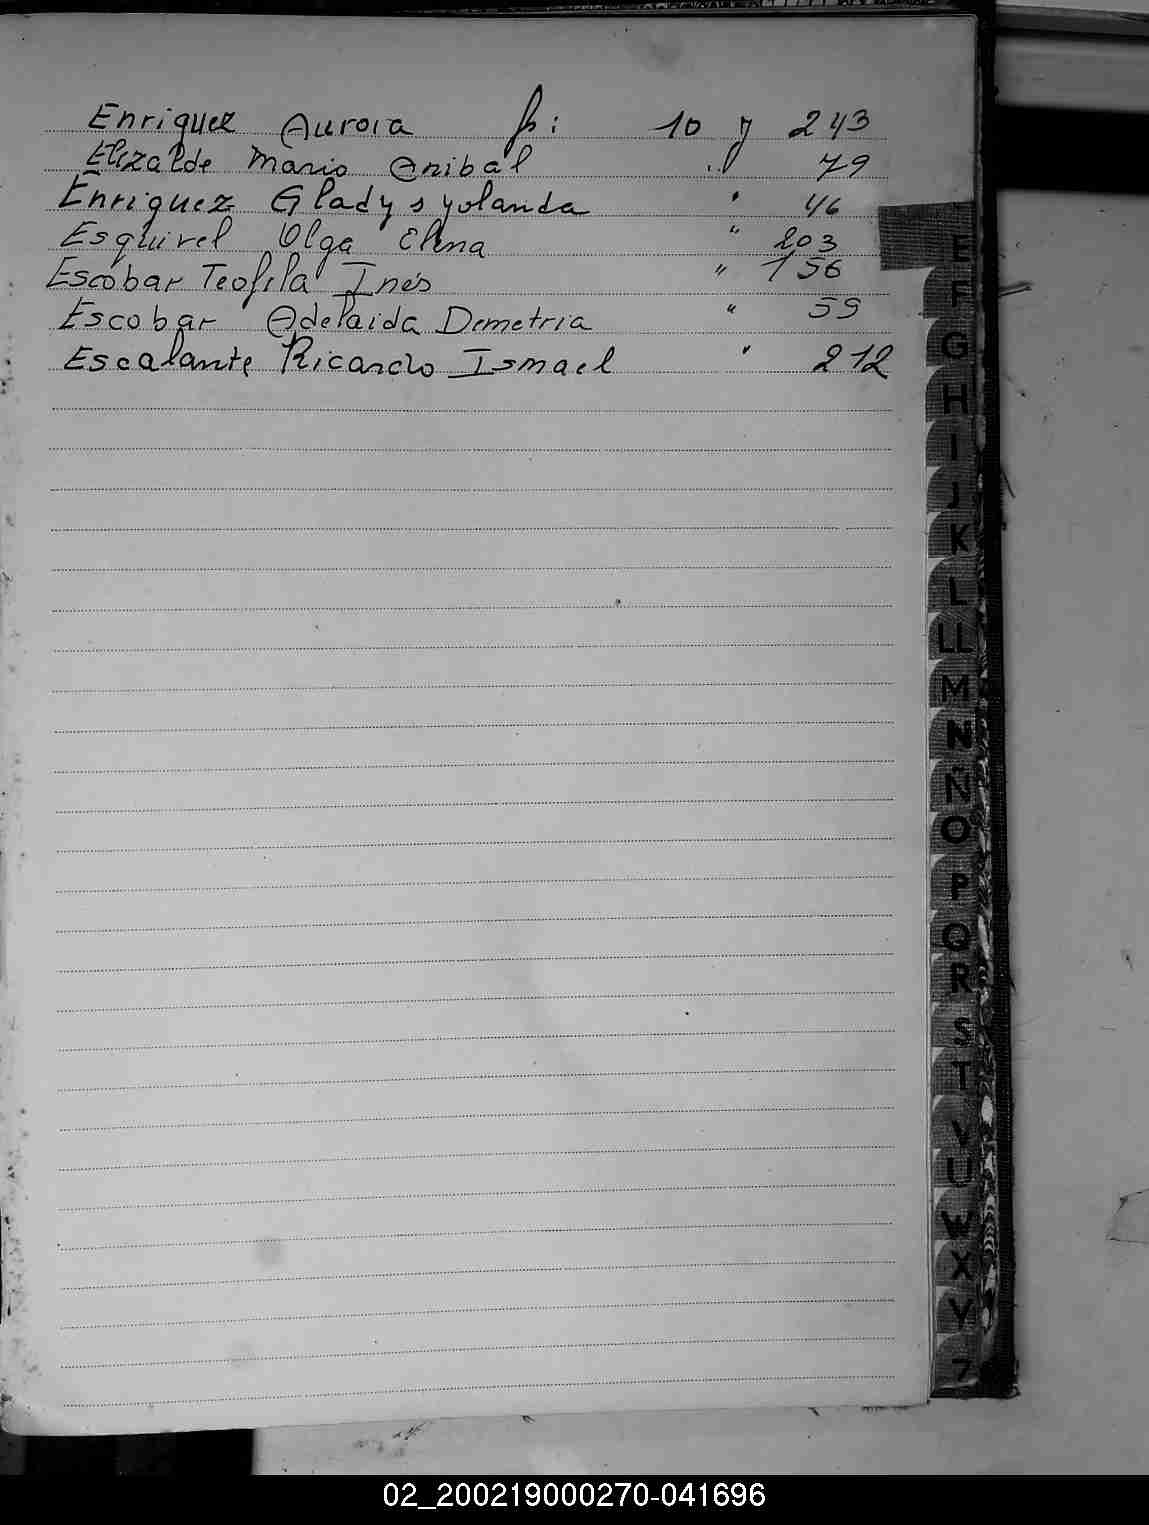 Enriquez Aurora fs: 10 y 243
Elizalde Mario Anibal " 79
Enriquez Gladys yolanda " 46
Esquivel Olga Elena " 203
Escobar Teofila Inés " 156
Escobar Adelaida Demetria " 59
Escalante Ricardo Ismael " 212
E
F
G
H
I
J
K
L
LL
M
N
Ñ
O
P
Q
R
S
T
V
U
W
X
Y
Z
02_200219000270-041696